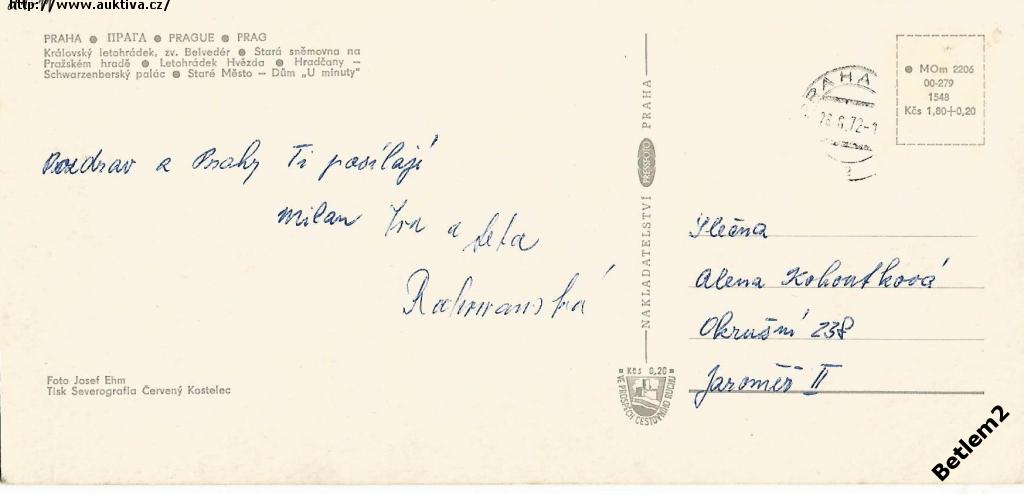 http://www.auktiva.cz/
PRAHA ● ПРАГА ● PRAGUE ● PRAG
Královský letohrádek, zv. Belvedér ● Stará sněmovna na
Pražském hradě ● Letohrádek Hvězda ● Hradčany –
Schwarzenberský palác ● Staré Město – Dům „U minuty"
Pozdrav z Prahy Ti posílají
Milan Iva a
Foto Josef Ehm
Tisk Severografia Červený Kostelec
NAKLADATELSTVÍ PRESSFOTO PRAHA
Kčs 0,20
VE PROSPĚCH CESTOVNÍHO RUCHU
PRAHA
26.6.72-1
● MOm 2206
00-279
1548
Kčs 1,80+0,20
Slečna
Alena Kohoutková
Okružní 238
Jaroměř II
Betlem2